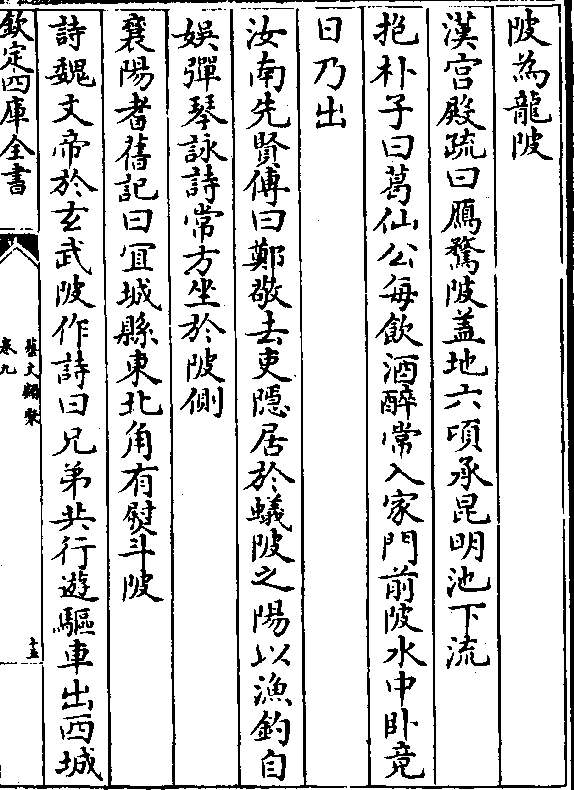 陂為龍陂
漢宫殿疏曰鴈鶩陂蓋地六項承昆明池下流
抱朴子曰葛仙公每飲酒醉常入家門前陂水中卧竟
日乃出
汝南先賢傅曰鄭敬去吏隠居於蟻陂之陽以漁釣自
娯彈琴詠詩常方坐於陂側
襄陽耆舊記曰宜城縣東北角有熨斗陂
詩魏文帝於玄武陂作詩曰兄弟共行遊驅車出西城
欽定四庫全書
藝文類聚
卷九
十五